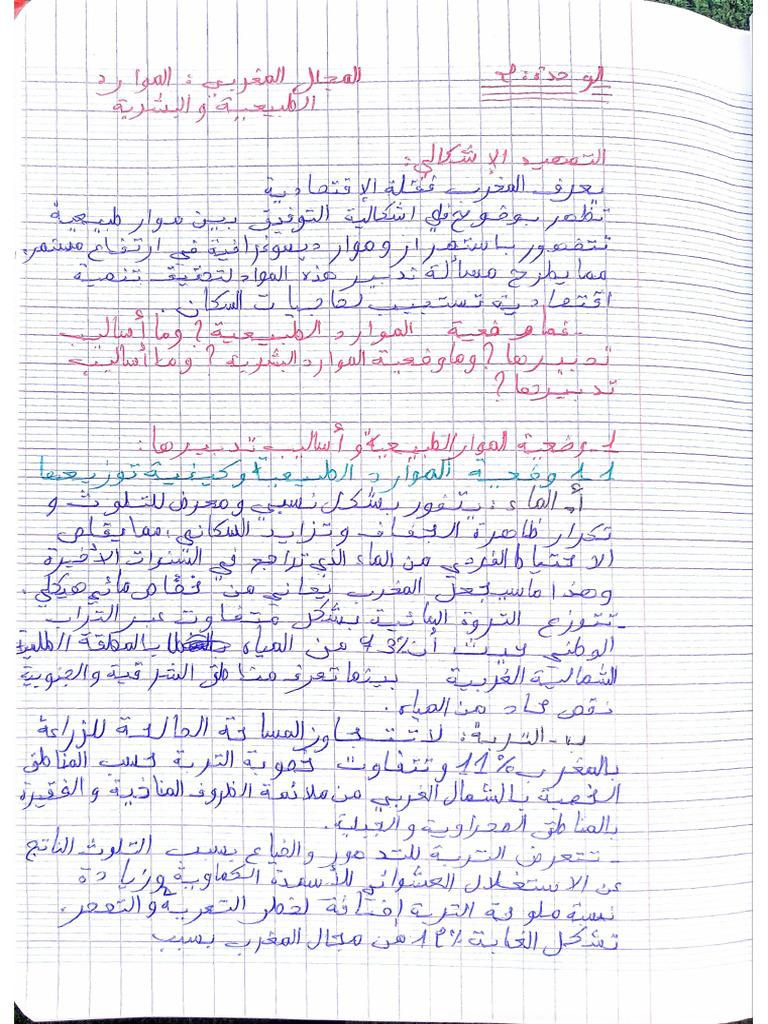 الوحدة: المجال المغربي: الموارد
الطبيعية والبشرية
التمهيد الإشكالي:
يعرف المغرب الإقتصادية
تظهر بوضوح في اشكالية التوفيق بين موار طبيعية
تتضهور باستمرار وموار ديموغرافية في ارتفاع مستمر
مما يطرح مسألة تدبير هذه المواد لتحقيق تنمية
اقتصادية تستجيب لحاجيات السكان.
- فماهي وضعية الموارد الطبيعية؟ وما أساليب
تدبيرها؟ وما وضعية الموارد البشرية؟ وما أساليب
تدبيرها؟
1- وضعية الموار الطبيعية و أساليب تدبيرها:
1.1 وضعية الموارد الطبيعية وكيفية توزيعها
أ- الماء: يتفور بشكل نسبي ومعرض للتلوث و
تكرار ظاهرة الجفاف وتزايد السكاني، مما يقلص
الاحتياط الفردي من الماء الذي تراجع في السنوات الأخيرة
وهذا ماسيجعل المغرب يعاني من خصاص مائي هيكلي.
- تتوزع الثروة المائية بشكل متفاوت عبر التراب
الوطني حيث أن 73% من المياه بالمنطقة الأطلسية
الشمالية الغربية بينما تعرف مناطق الشرقية والجنوبية
نقص حاد من المياه.
ب- التربة: لا تتجاوز المساحة الصالحة للزراعة
بالمغرب 11% وتتفاوت خصوبة التربة حسب المناطق
الخصبة بالشمال الغربي من ملائمة الظروف المناخية و الفقيرة
بالمناطق الصحراوية والجبلية.
- تتعرض التربة للتدهور والضياع بسبب التلوث الناتج
عن الاستغلال العشوائي للأسمدة الكماوية وزيادة
نسبة ملوحة التربة إضافة لخطر التعرية والتصحر.
تشكل الغابة 12% من مجال المغرب بسبب